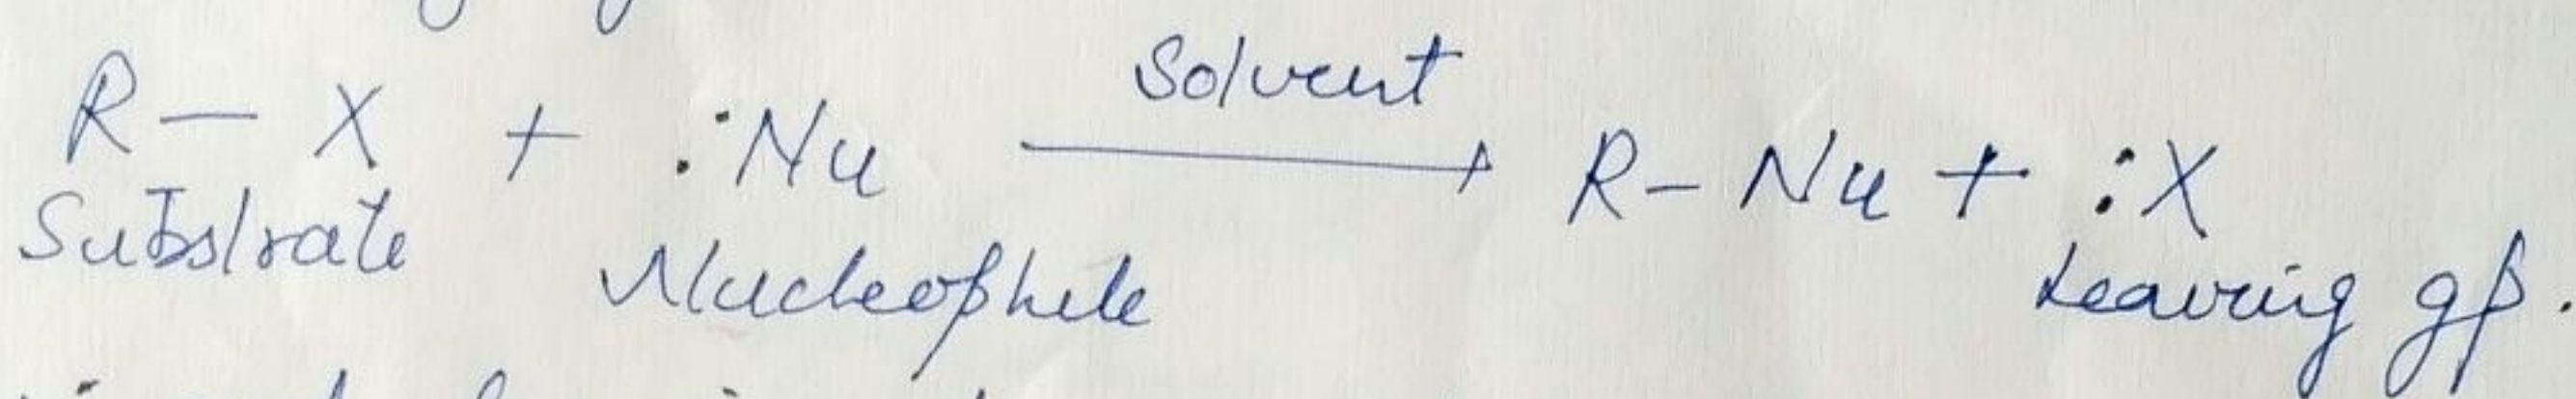 Solvent
R — X + :Nu ⟶ R - Nu + :X
Substrate Nucleophile Leaving gp.